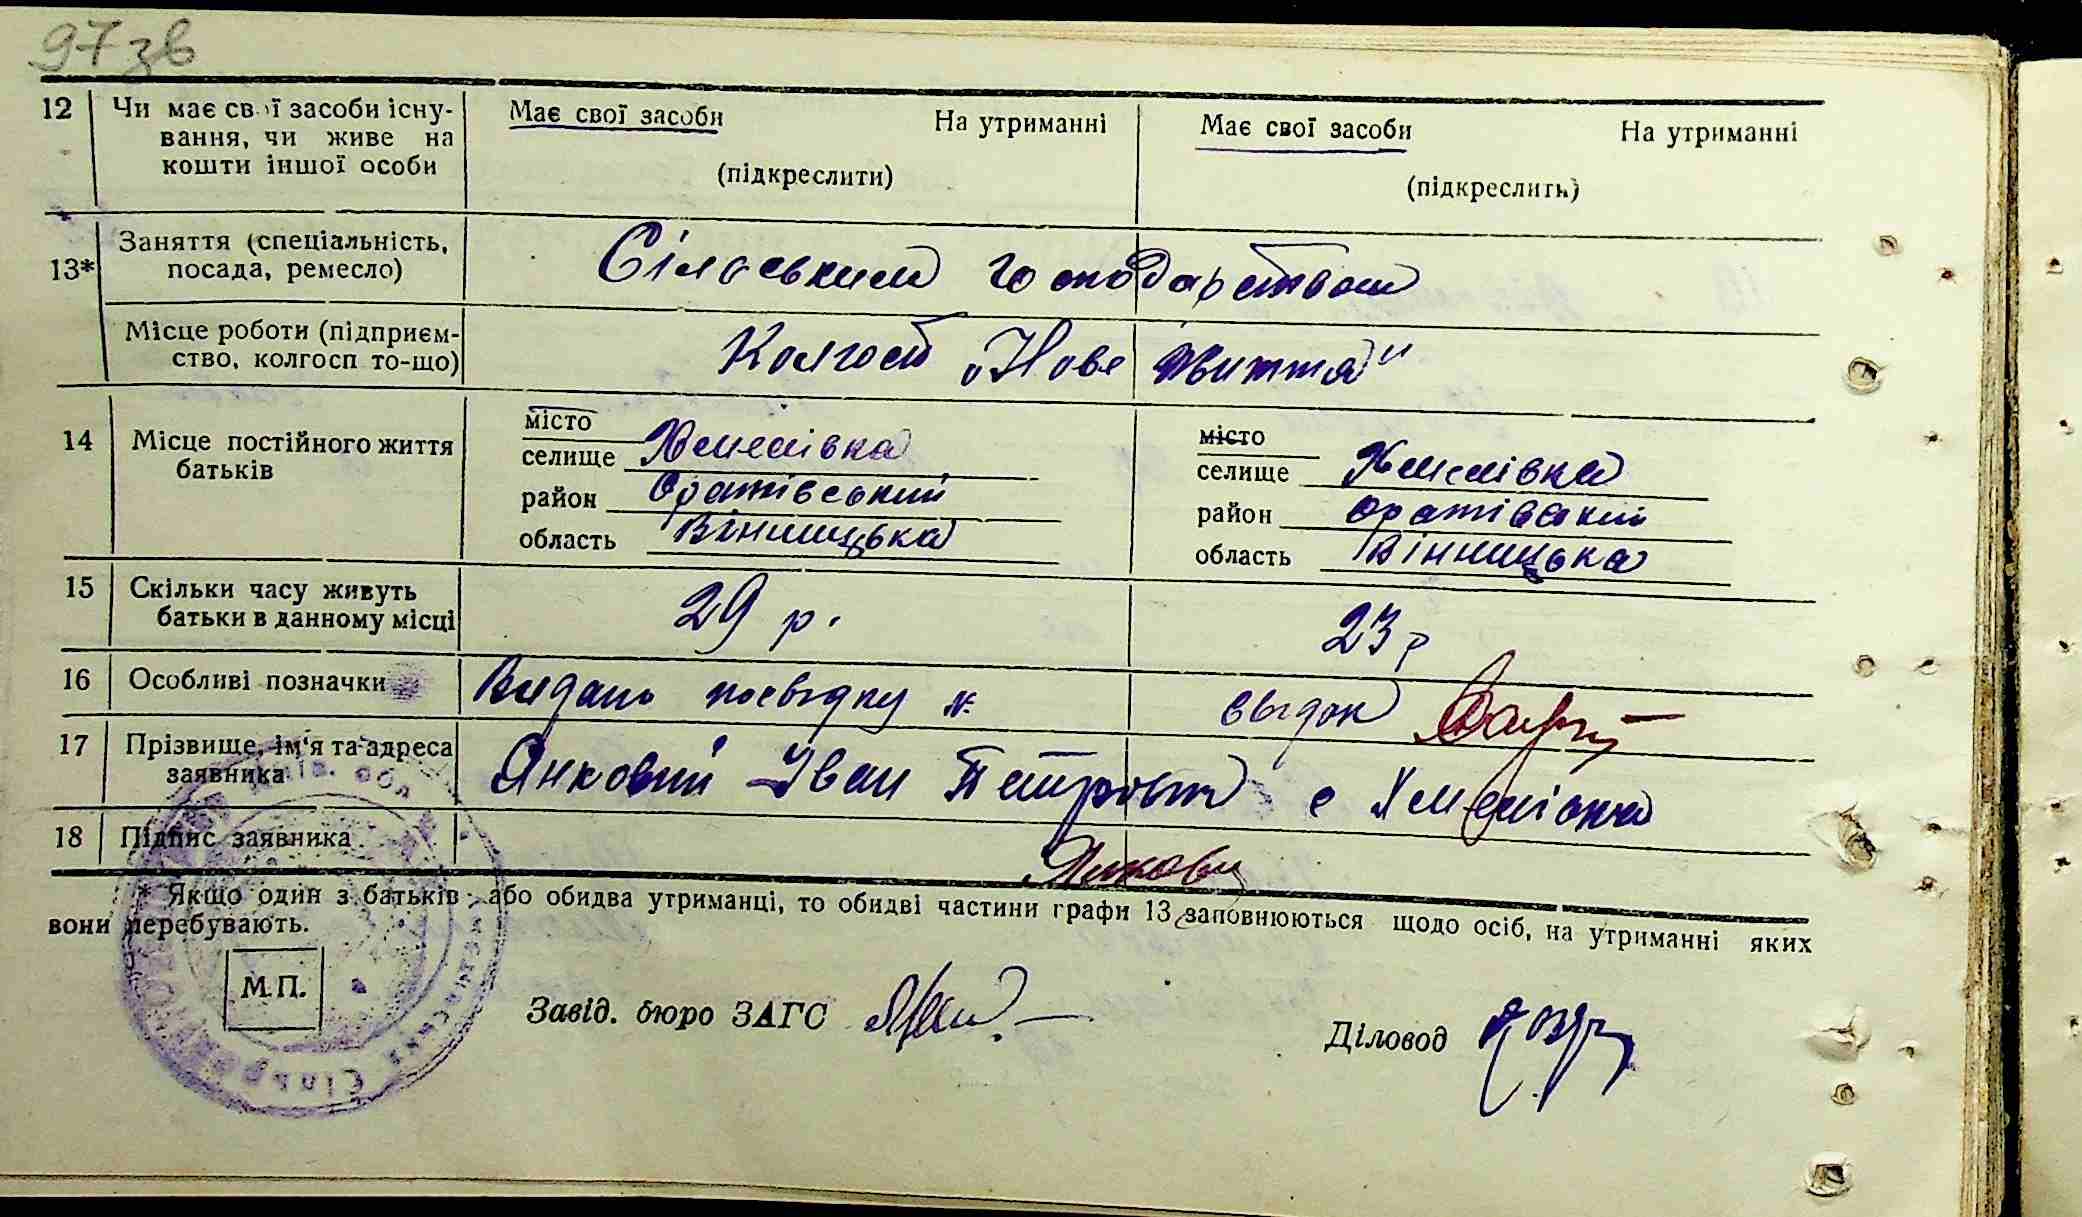 97 зв
12 Чи має свої засоби існу- Має свої засоби На утриманні Має свої засоби На утриманні
вання, чи живе на
кошти іншої особи (підкреслити) (підкреслить)
13* Заняття (спеціальність, Сільським господарством
посада, ремесло)
Місце роботи (підприєм- Колгосп „Нове життя"
ство, колгосп то-що)
14 Місце постійного життя місто місто
батьків селище Хмелівка селище Хмелівка
район Оратівський район Оратівський
область Вінницька область Вінницька
15 Скільки часу живуть 29 р. 23 р
батьки в данному місці
16 Особливі позначки Видано посвідку №
17 Прізвище, ім'я та адреса Янковий Іван Петрович с Хмелівка
заявника
18 Підпис заявника Янкови
* Якщо один з батьків, або обидва утриманці, то обидві частини графи 13 заповнюються щодо осіб, на утриманні яких
вони перебувають.
М.П.
Завід. бюро ЗАГС
Діловод